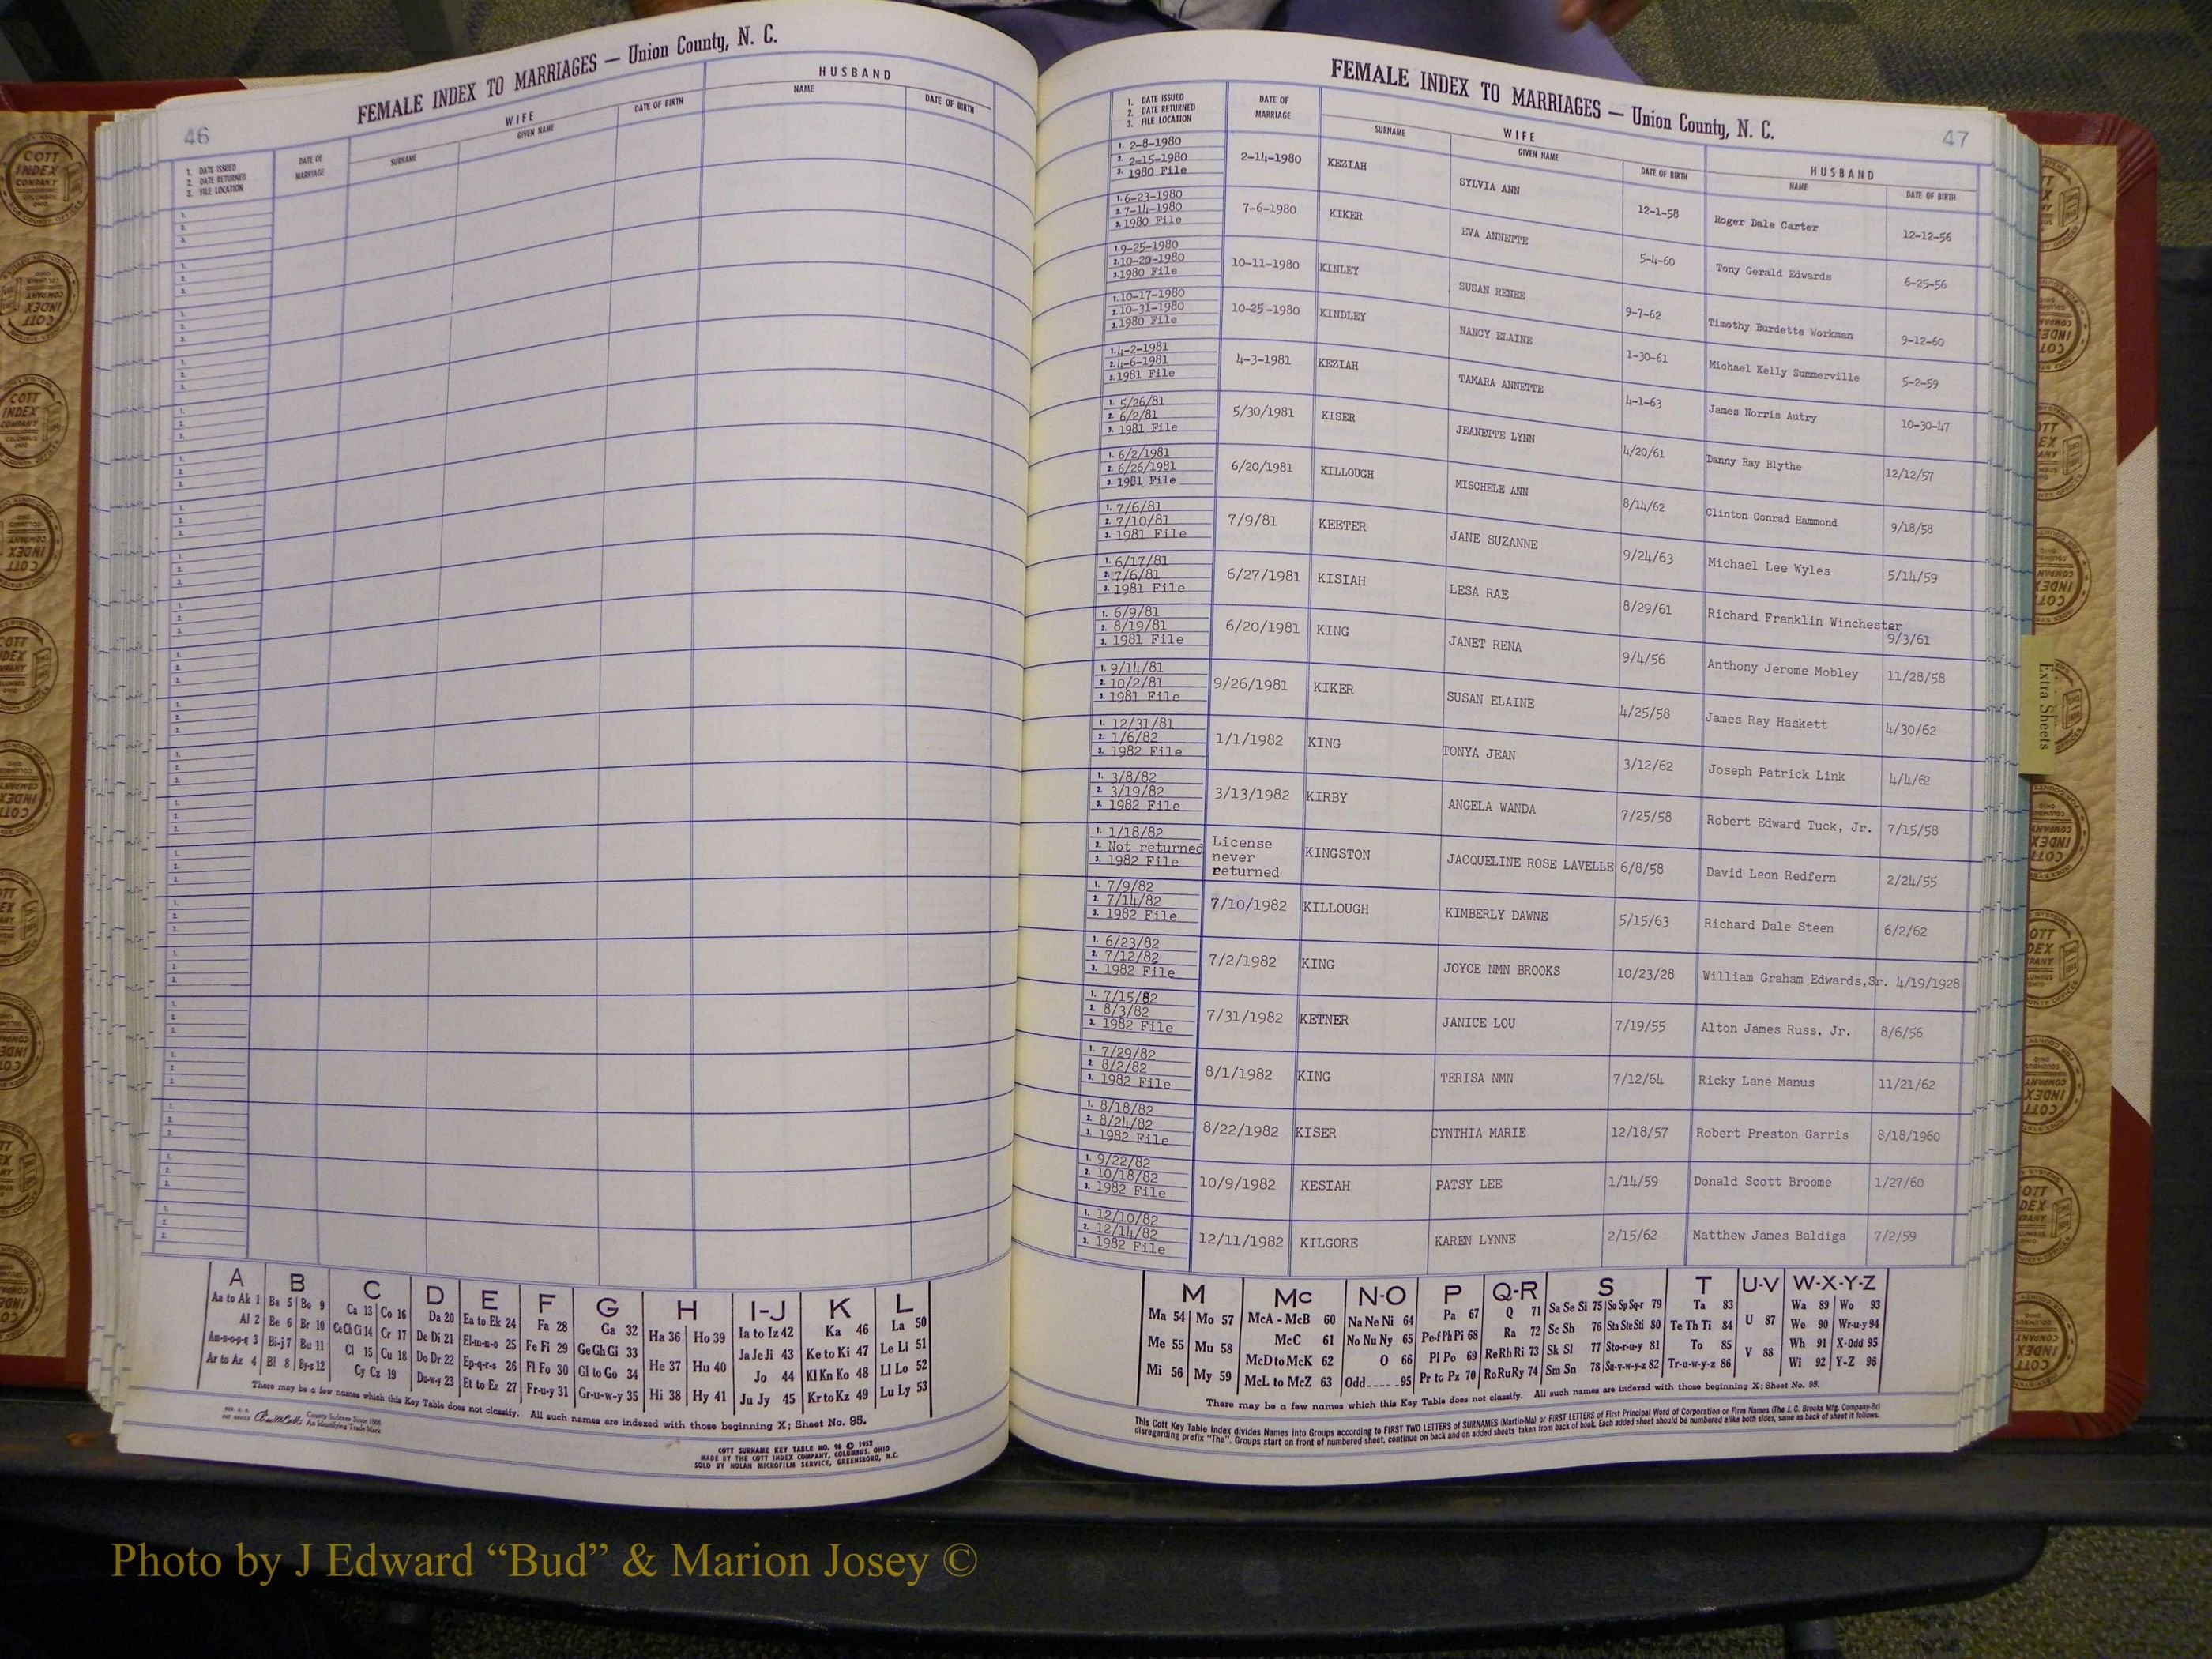 46
FEMALE INDEX TO MARRIAGES — Union County, N. C.
WIFE
HUSBAND
1. DATE ISSUED
2. DATE RETURNED
3. FILE LOCATION
DATE OF MARRIAGE
SURNAME
GIVEN NAME
DATE OF BIRTH
NAME
DATE OF BIRTH
A B C D E F G H I-J K L
Aa to Ak 1 Ba 5 Bo 9 Ca 13 Co 16 Da 20 Ea to Ek 24 Fa 28 Ga 32 Ha 36 Ho 39 Ia to Iz 42 Ka 46 La 50
Al 2 Be 6 Br 10 Ce Ch Ci 14 Cr 17 De Di 21 El-m-n-o 25 Fe Fi 29 Ge Gh Gi 33 Ja Je Ji 43 Ke to Ki 47 Le Li 51
Am-n-o-p-q 3 Bi-j 7 Bu 11 Cl 15 Cu 18 Do Dr 22 Ep-q-r-s 26 Fl Fo 30 Gl to Go 34 He 37 Hu 40 Jo 44 Kl Kn Ko 48 Ll Lo 52
Ar to Az 4 Bl 8 By-z 12 Cy Cz 19 Du-w-y 23 Et to Ez 27 Fr-u-y 31 Gr-u-w-y 35 Hi 38 Hy 41 Ju Jy 45 Kr to Kz 49 Lu Ly 53
There may be a few names which this Key Table does not classify. All such names are indexed with those beginning X; Sheet No. 95.
County Indexes Since 1888
An Identifying Trade Mark
COTT SURNAME KEY TABLE NO. 96 © 1952
MADE BY THE COTT INDEX COMPANY, COLUMBUS, OHIO
SOLD BY NOLAN MICROFILM SERVICE, GREENSBORO, N.C.
FEMALE INDEX TO MARRIAGES — Union County, N. C.
47
1. DATE ISSUED
2. DATE RETURNED
3. FILE LOCATION
DATE OF MARRIAGE
WIFE
SURNAME
GIVEN NAME
DATE OF BIRTH
HUSBAND
NAME
DATE OF BIRTH
1. 2-8-1980
2. 2-15-1980
3. 1980 File
2-14-1980 KEZIAH SYLVIA ANN 12-1-58 Roger Dale Carter 12-12-56
1. 6-23-1980
2. 7-14-1980
3. 1980 File
7-6-1980 KIKER EVA ANNETTE 5-4-60 Tony Gerald Edwards 6-25-56
1. 9-25-1980
2. 10-20-1980
3. 1980 File
10-11-1980 KINLEY SUSAN RENEE 9-7-62 Timothy Burdette Workman 9-12-60
1. 10-17-1980
2. 10-31-1980
3. 1980 File
10-25-1980 KINDLEY NANCY ELAINE 1-30-61 Michael Kelly Summerville 5-2-59
1. 4-2-1981
2. 4-6-1981
3. 1981 File
4-3-1981 KEZIAH TAMARA ANNETTE 4-1-63 James Norris Autry 10-30-47
1. 5/26/81
2. 6/2/81
3. 1981 File
5/30/1981 KISER JEANETTE LYNN 4/20/61 Danny Ray Blythe 12/12/57
1. 6/2/1981
2. 6/26/1981
3. 1981 File
6/20/1981 KILLOUGH MISCHELE ANN 8/14/62 Clinton Conrad Hammond 9/18/58
1. 7/6/81
2. 7/10/81
3. 1981 File
7/9/81 KEETER JANE SUZANNE 9/24/63 Michael Lee Wyles 5/14/59
1. 6/17/81
2. 7/6/81
3. 1981 File
6/27/1981 KISIAH LESA RAE 8/29/61 Richard Franklin Winchester 9/3/61
1. 6/9/81
2. 8/19/81
3. 1981 File
6/20/1981 KING JANET RENA 9/4/56 Anthony Jerome Mobley 11/28/58
1. 9/14/81
2. 10/2/81
3. 1981 File
9/26/1981 KIKER SUSAN ELAINE 4/25/58 James Ray Haskett 4/30/62
1. 12/31/81
2. 1/6/82
3. 1982 File
1/1/1982 KING TONYA JEAN 3/12/62 Joseph Patrick Link 4/4/62
1. 3/8/82
2. 3/19/82
3. 1982 File
3/13/1982 KIRBY ANGELA WANDA 7/25/58 Robert Edward Tuck, Jr. 7/15/58
1. 1/18/82
2. Not returned
3. 1982 File
License never returned KINGSTON JACQUELINE ROSE LAVELLE 6/8/58 David Leon Redfern 2/24/55
1. 7/9/82
2. 7/14/82
3. 1982 File
7/10/1982 KILLOUGH KIMBERLY DAWNE 5/15/63 Richard Dale Steen 6/2/62
1. 6/23/82
2. 7/12/82
3. 1982 File
7/2/1982 KING JOYCE NMN BROOKS 10/23/28 William Graham Edwards,Sr. 4/19/1928
1. 7/15/82
2. 8/3/82
3. 1982 File
7/31/1982 KETNER JANICE LOU 7/19/55 Alton James Russ, Jr. 8/6/56
1. 7/29/82
2. 8/2/82
3. 1982 File
8/1/1982 KING TERISA NMN 7/12/64 Ricky Lane Manus 11/21/62
1. 8/18/82
2. 8/24/82
3. 1982 File
8/22/1982 KISER CYNTHIA MARIE 12/18/57 Robert Preston Garris 8/18/1960
1. 9/22/82
2. 10/18/82
3. 1982 File
10/9/1982 KESIAH PATSY LEE 1/14/59 Donald Scott Broome 1/27/60
1. 12/10/82
2. 12/14/82
3. 1982 File
12/11/1982 KILGORE KAREN LYNNE 2/15/62 Matthew James Baldiga 7/2/59
M Mc N-O P Q-R S T U-V W-X-Y-Z
Ma 54 Mo 57 McA - McB 60 Na Ne Ni 64 Pa 67 Q 71 Sa Se Si 75 So Sp Sq-r 79 Ta 83 U 87 Wa 89 Wo 93
Me 55 Mu 58 McC 61 No Nu Ny 65 Pe-f Ph Pi 68 Ra 72 Sc Sh 76 Sta Ste Sti 80 Te Th Ti 84 We 90 Wr-u-y 94
McD to McK 62 O 66 Pl Po 69 Re Rh Ri 73 Sk Sl 77 Sto-r-u-y 81 To 85 V 88 Wh 91 X-Odd 95
Mi 56 My 59 McL to McZ 63 Odd 95 Pr to Pz 70 Ro Ru Ry 74 Sm Sn 78 Su-v-w-y-z 82 Tr-u-w-y-z 86 Wi 92 Y-Z 96
There may be a few names which this Key Table does not classify. All such names are indexed with those beginning X; Sheet No. 95.
This Cott Key Table Index divides Names into Groups according to FIRST TWO LETTERS of SURNAMES (Martin-Ma) or FIRST LETTERS of First Principal Word of Corporation or Firm Names (The J. C. Brooks Mfg. Company-Br)
disregarding prefix "The". Groups start on front of numbered sheet, continue on back and on added sheets taken from back of book. Each added sheet should be numbered alike both sides, same as back of sheet it follows.
Extra Sheets
COTT
INDEX
COMPANY
COLUMBUS
OHIO
Photo by J Edward “Bud” & Marion Josey ©